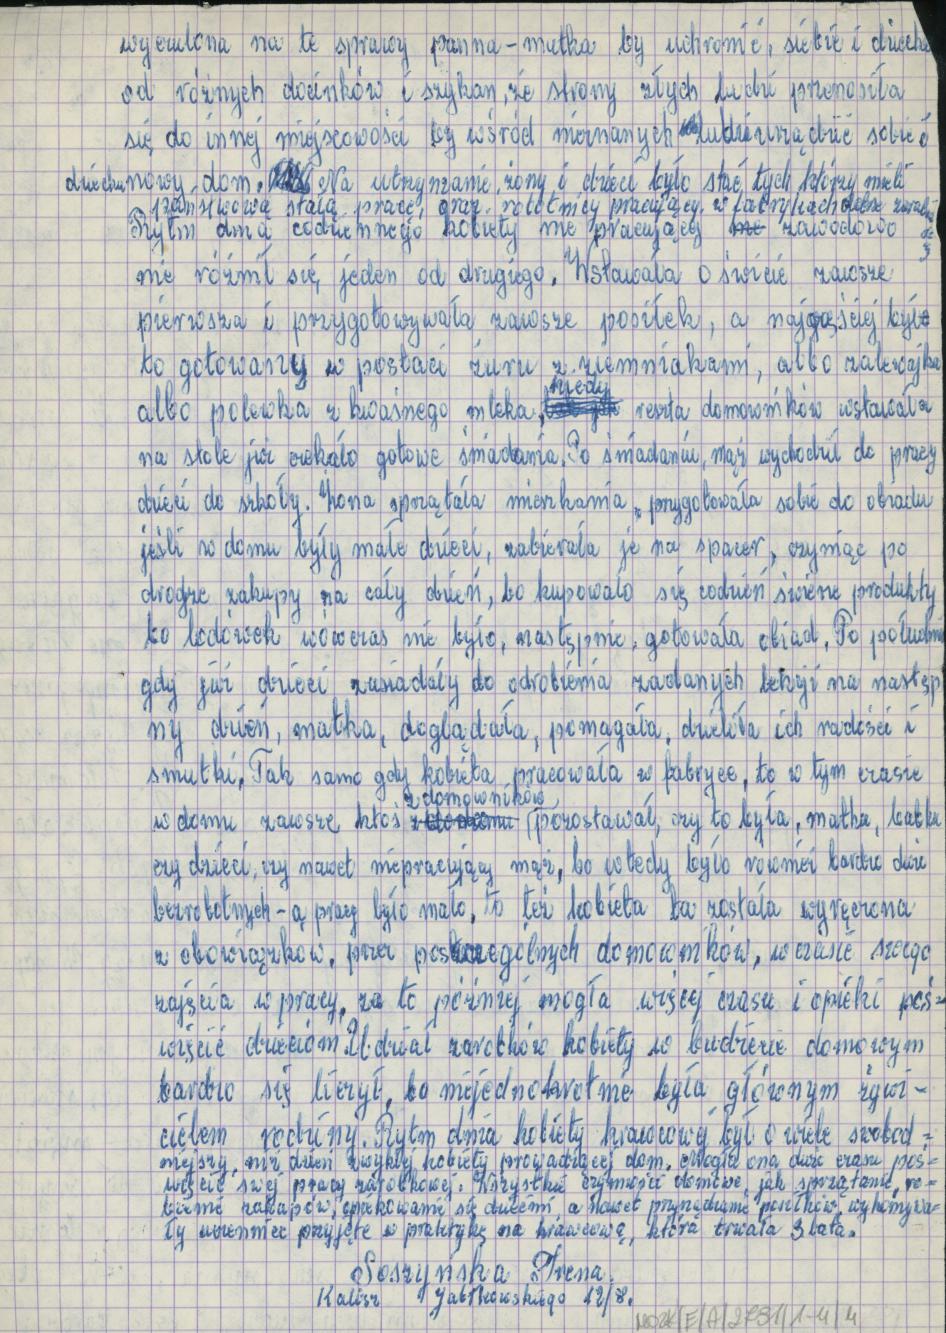 wyczulona na te sprawy panna-matka by uchronić, siebie i dziecko
od różnych docinków i szykan, ze strony złych ludzi przenosiła
się do innej miejscowości by wśród nieznanych ludzi urządzić sobie i
dziecku nowy dom. Na utrzymanie, żony i dzieci było stać, tych którzy mieli
państwową stałą pracę, oraz robotnicy pracujący w fabrykach dobrze
Rytm dnia codziennego kobiety nie pracującej zawodowo
nie różnił się, jeden od drugiego. Wstawała o świcie zawsze
pierwsza i przygotowywała zawsze posiłek, a najczęściej było
to gotowany w postaci żuru z ziemniakami, albo zalewajka
albo polewka z kwaśnego mleka, kiedy reszta domowników wstawała
na stole już czekało gotowe śniadania. Po śniadaniu, mąż wychodził do pracy
dzieci do szkoły. Żona sprzątała mieszkania, przygotowała sobie do obiadu
jeśli w domu były małe dzieci, zabierała je na spacer, czyniąc po
drodze zakupy na cały dzień, bo kupowało się codzień świeże produkty
bo lodówek wówczas nie było, następnie, gotowała obiad. Po południu
gdy już dzieci zasiadały do odrobienia zadanych lekcji na następ
ny dzień, matka, doglądała, pomagała, dzieliła ich radości i
smutki. Tak samo gdy kobieta pracowała w fabryce, to w tym czasie
w domu zawsze ktoś z domowników pozostawał, czy to była, matka, babka
czy dzieci, czy nawet niepracujący mąż, bo wtedy było również bardzo dużo
bezrobotnych - a pracy było mało, to też kobieta ta została wyręczona
z obowiązków, przez poszczególnych domowników, w czasie swego
zajęcia w pracy, za to później mogła więcej czasu i opieki poś=
więcić dzieciom. Udział zarobków kobiety w budżecie domowym
bardzo się liczył, bo niejednokrotnie była głównym żywi-
cielem rodziny. Rytm dnia kobiety krawcowej był o wiele swobod=
niejszy, niż dzień zwykłej kobiety prowadzącej dom. Mogła ona dużo czasu poś=
więcić swej pracy zarobkowej. Wszystkie czynności domowe, jak sprzątanie, ro=
bienie zakupów, opiekowanie się dziećmi, a nawet przyrządzanie posiłków, wykonywa=
ły uczennice przyjęte w praktykę na krawcową, która trwała 3 lata.
Soszyńska Irena.
Kalisz Jabłkowskiego 12/8.